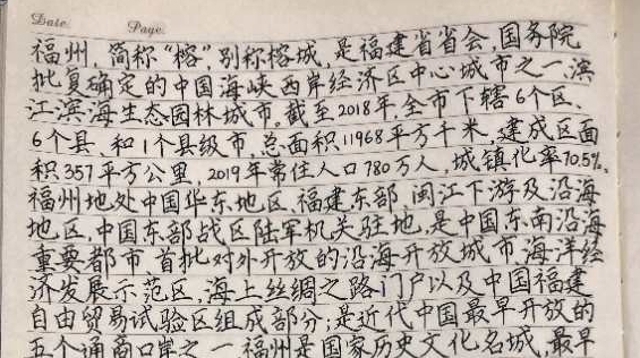 Date.
Page.
福州,简称“榕”,别称榕城,是福建省省会,国务院
批复确定的中国海峡西岸经济区中心城市之一,滨
江滨海生态园林城市。截至2018年,全市下辖6个区、
6个县、和1个县级市,总面积11968平方千米,建成区面
积357平方公里,2019年常住人口780万人,城镇化率70.5%。
福州地处中国华东地区、福建东部、闽江下游及沿海
地区,中国东部战区陆军机关驻地,是中国东南沿海
重要都市 首批对外开放的沿海开放城市,海洋经
济发展示范区,海上丝绸之路门户以及中国福建
自由贸易试验区组成部分;是近代中国最早开放的
五个通商口岸之一 福州是国家历史文化名城,最早